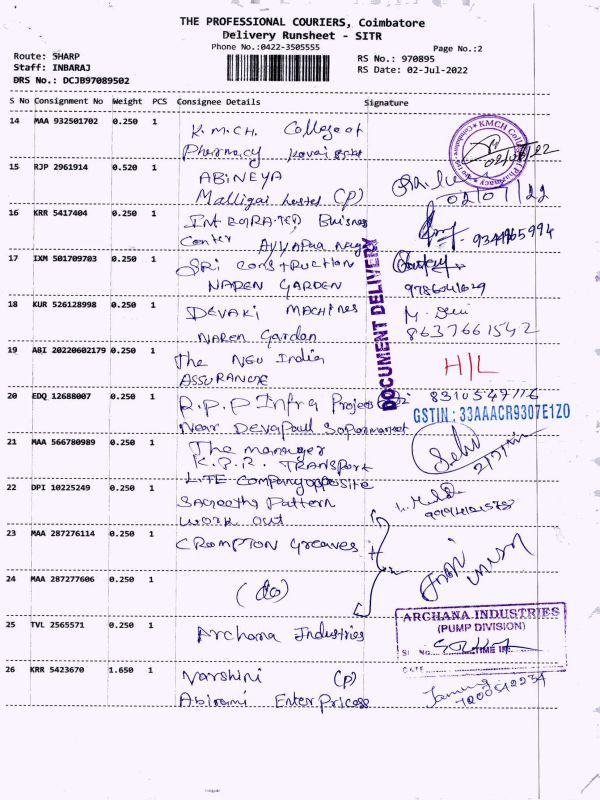 THE PROFESSIONAL COURIERS, Coimbatore
Delivery Runsheet - SITR
Phone No.:0422-3505555
Page No.:2
Route: SHARP
Staff: INBARAJ
DRS No.: DCJB97089502
RS No.: 970895
RS Date: 02-Jul-2022
S No Consignment No Weight PCS Consignee Details Signature
14 MAA 932501702 0.250 1 K.M.CH. College of
Pharmacy Kovai
KMCH College of Pharmacy
02/07/22
15 RJP 2961914 0.520 1 ABINEYA
Malligai hostel (P)
02/07/22
16 KRR 5417404 0.250 1 INTEGRATED Buisness
Center Ayyapaa Nagar
9344965994
17 IXM 501709703 0.250 1 SRI construction
NAREN GARDEN
18 KUR 526128998 0.250 1 DEVAKI MACHINES
Naren Gardan
M. Devi
8637661542
DOCUMENT DELIVERY
19 ABI 20220602179 0.250 1 The New India
ASSURANCE
H/L
20 EDQ 12688007 0.250 1 R.P.P Infra Project
Near Devapaul Supermarket
GSTIN : 33AAACR9307E1Z0
21 MAA 566780989 0.250 1 The manager
K.P.R. TRANSPORT
22 DPI 10225249 0.250 1 LITE Company opposite
Sageetha Pattern
work out
23 MAA 287276114 0.250 1 CROMPTON Greaves
24 MAA 287277606 0.250 1 (do)
25 TVL 2565571 0.250 1 Archana Industries
ARCHANA INDUSTRIES
(PUMP DIVISION)
SI NO. TIME IN:
DATE
26 KRR 5423670 1.650 1 Varshini (P)
Abirami Enterpricese
7200512234